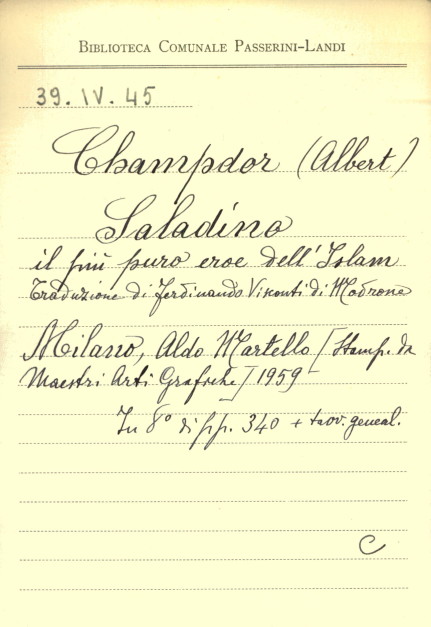 BIBLIOTECA COMUNALE PASSERINI-LANDI
39. IV. 45
Champdor (Albert)
Saladino
il più puro eroe dell'Islam
Traduzione di Ferdinando Visconti di Modrone
Milano, Aldo Martello [Stamp. da
Maestri Arti Grafiche] 1959
In 8° di pp. 340 + tavv. geneal.
C